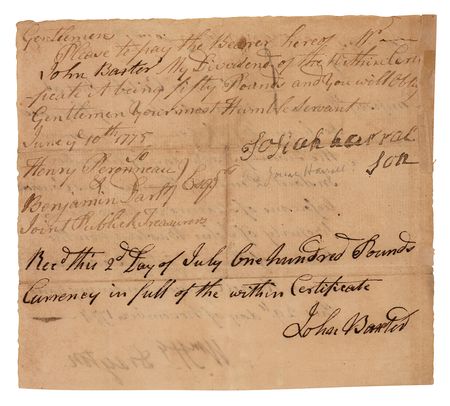 Gentlemen
Please to pay the Bearer hereof Mr
John Baxter My Dividend of the Within Certi
ficate it being fifty Pounds and you will Oblige
Gentlemen your most Humble Servant
June ye 10th 1775
Josiah Harral
son
Henry Peronneau
& Esqrs
Benjamin Dart
Joint Publick Treasurers
Recd this 2d Day of July One hundred Pounds
Currency in full of the within Certificate
John Baxter